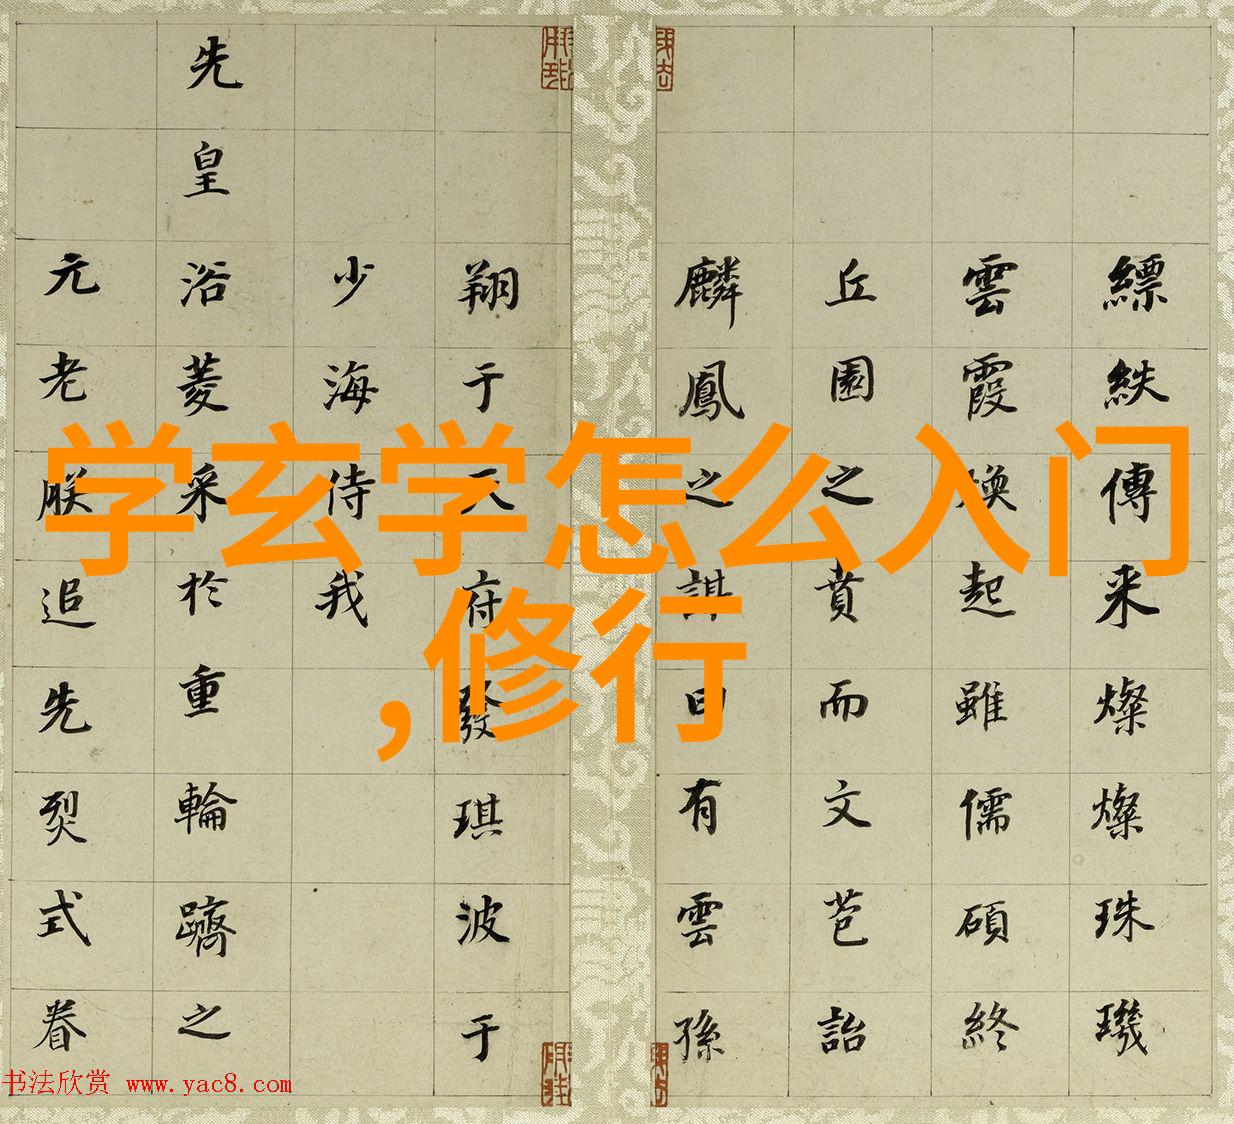 学玄学怎么入门
,修行
縹紩傳来燦燦珠璣
雲霞煥起雖儒碩終
丘園之賁而文芭詒
麟鳳之諆曰有雲孫
翔于天府發琪波于
少海侍我
先皇浴菱采於重輪躋之
元老朕追先烈式眷
书法欣赏 www.yac8.com